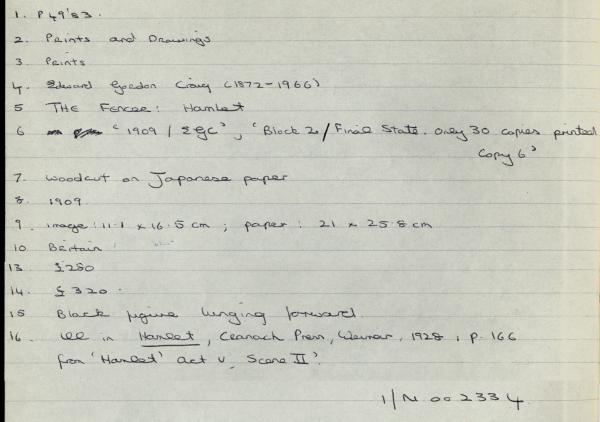 1. P49'83.
2. Prints and Drawings
3 Prints
4. Edward Gordon Craig (1872-1966)
5 THE Fencer: Hamlet
6 '1909 / EGC', 'Block 20/Final State. only 30 copies printed
Copy 6'
7. woodcut on Japanese paper
8. 1909.
9. image: 11.1 x 16.5 cm ; paper : 21 x 25.8 cm
10 Britain
13. £280
14. £320.
15 Black figure lunging forward.
16. ill in Hamlet, Cranach Press, Weimar, 1928, p. 166
from 'Hamlet' Act V, Scene II'.
1/N 002334